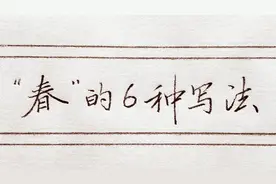 “春”的6种写法